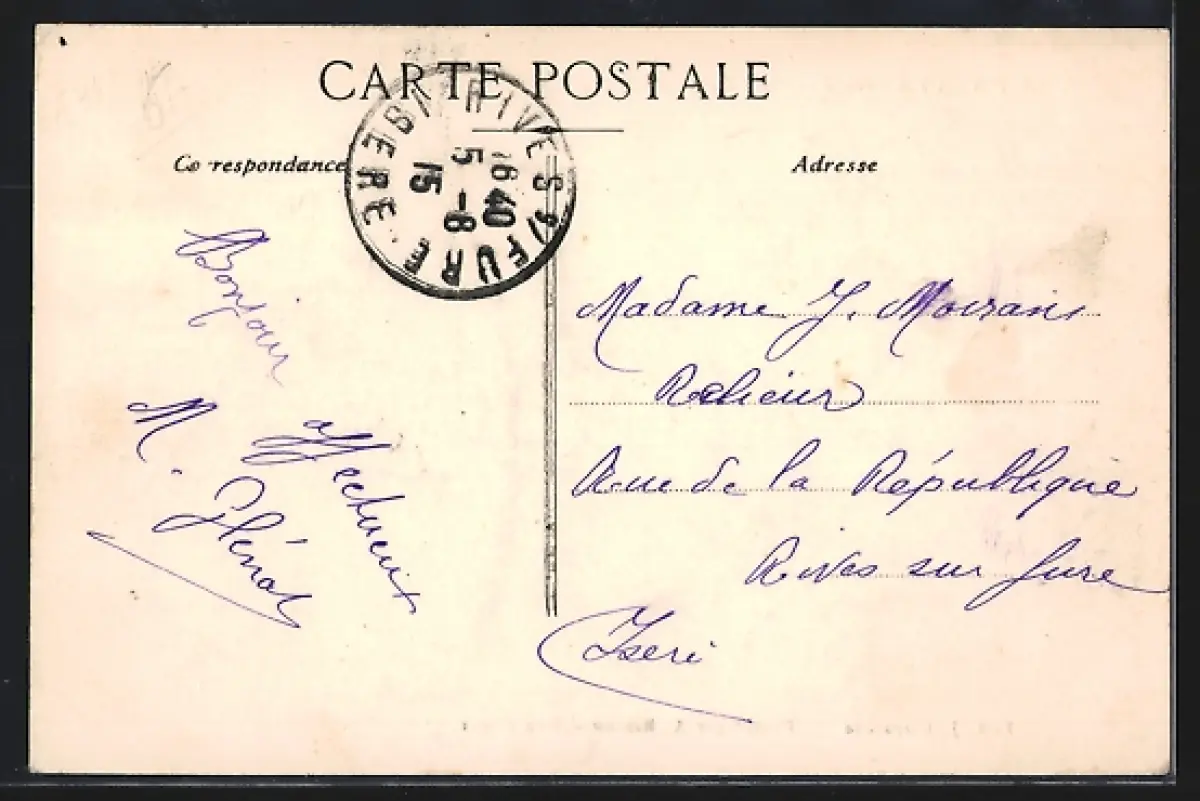 CARTE POSTALE
Correspondance
Adresse
RIVES S/FURE
ISERE
16 40
5 - 6
15
Bonjour
affectueux
M. Glénat
Madame J. Moirans
Relieur
Rue de la République
Rives sur fure
Isère